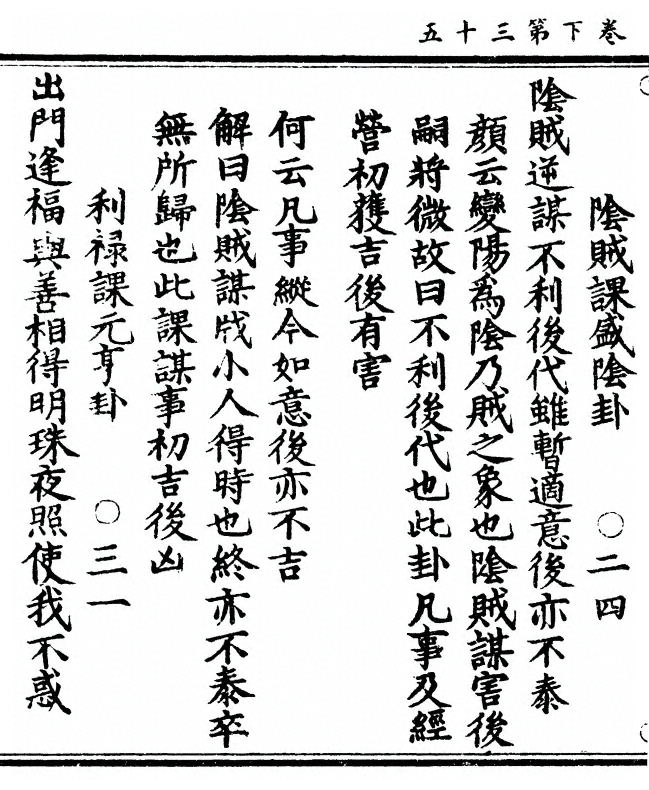 卷下第三十五
陰賊課盛陰卦　○二四
陰賊逆謀不利後代雖暫適意後亦不泰
顔云變陽為陰乃賊之象也陰賊謀害後
嗣將微故曰不利後代也此卦凡事及經
營初獲吉後有害
何云凡事縱今如意後亦不吉
解曰陰賊謀戕小人得時也終亦不泰卒
無所歸也此課謀事初吉後凶
利禄課元亨卦　○三一
出門逢福與善相得明珠夜照使我不惑